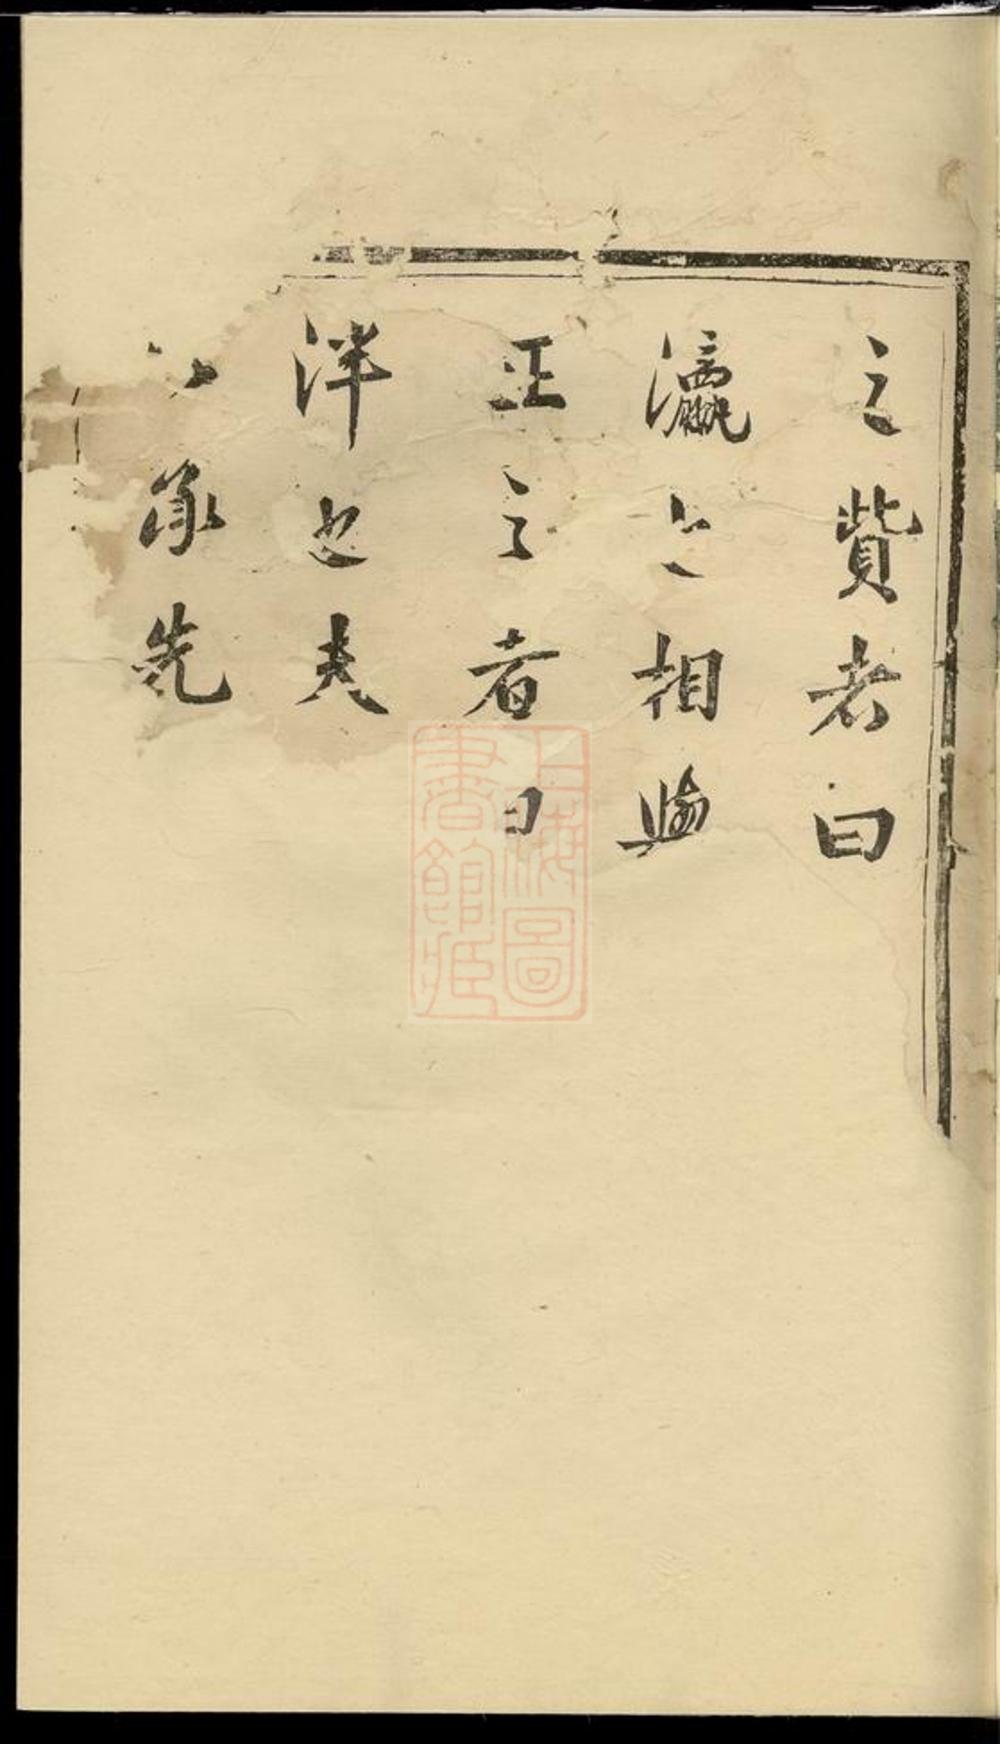 之貲者曰
瀛之相與
正之者曰
洋也夫
承先
上海圖書館藏